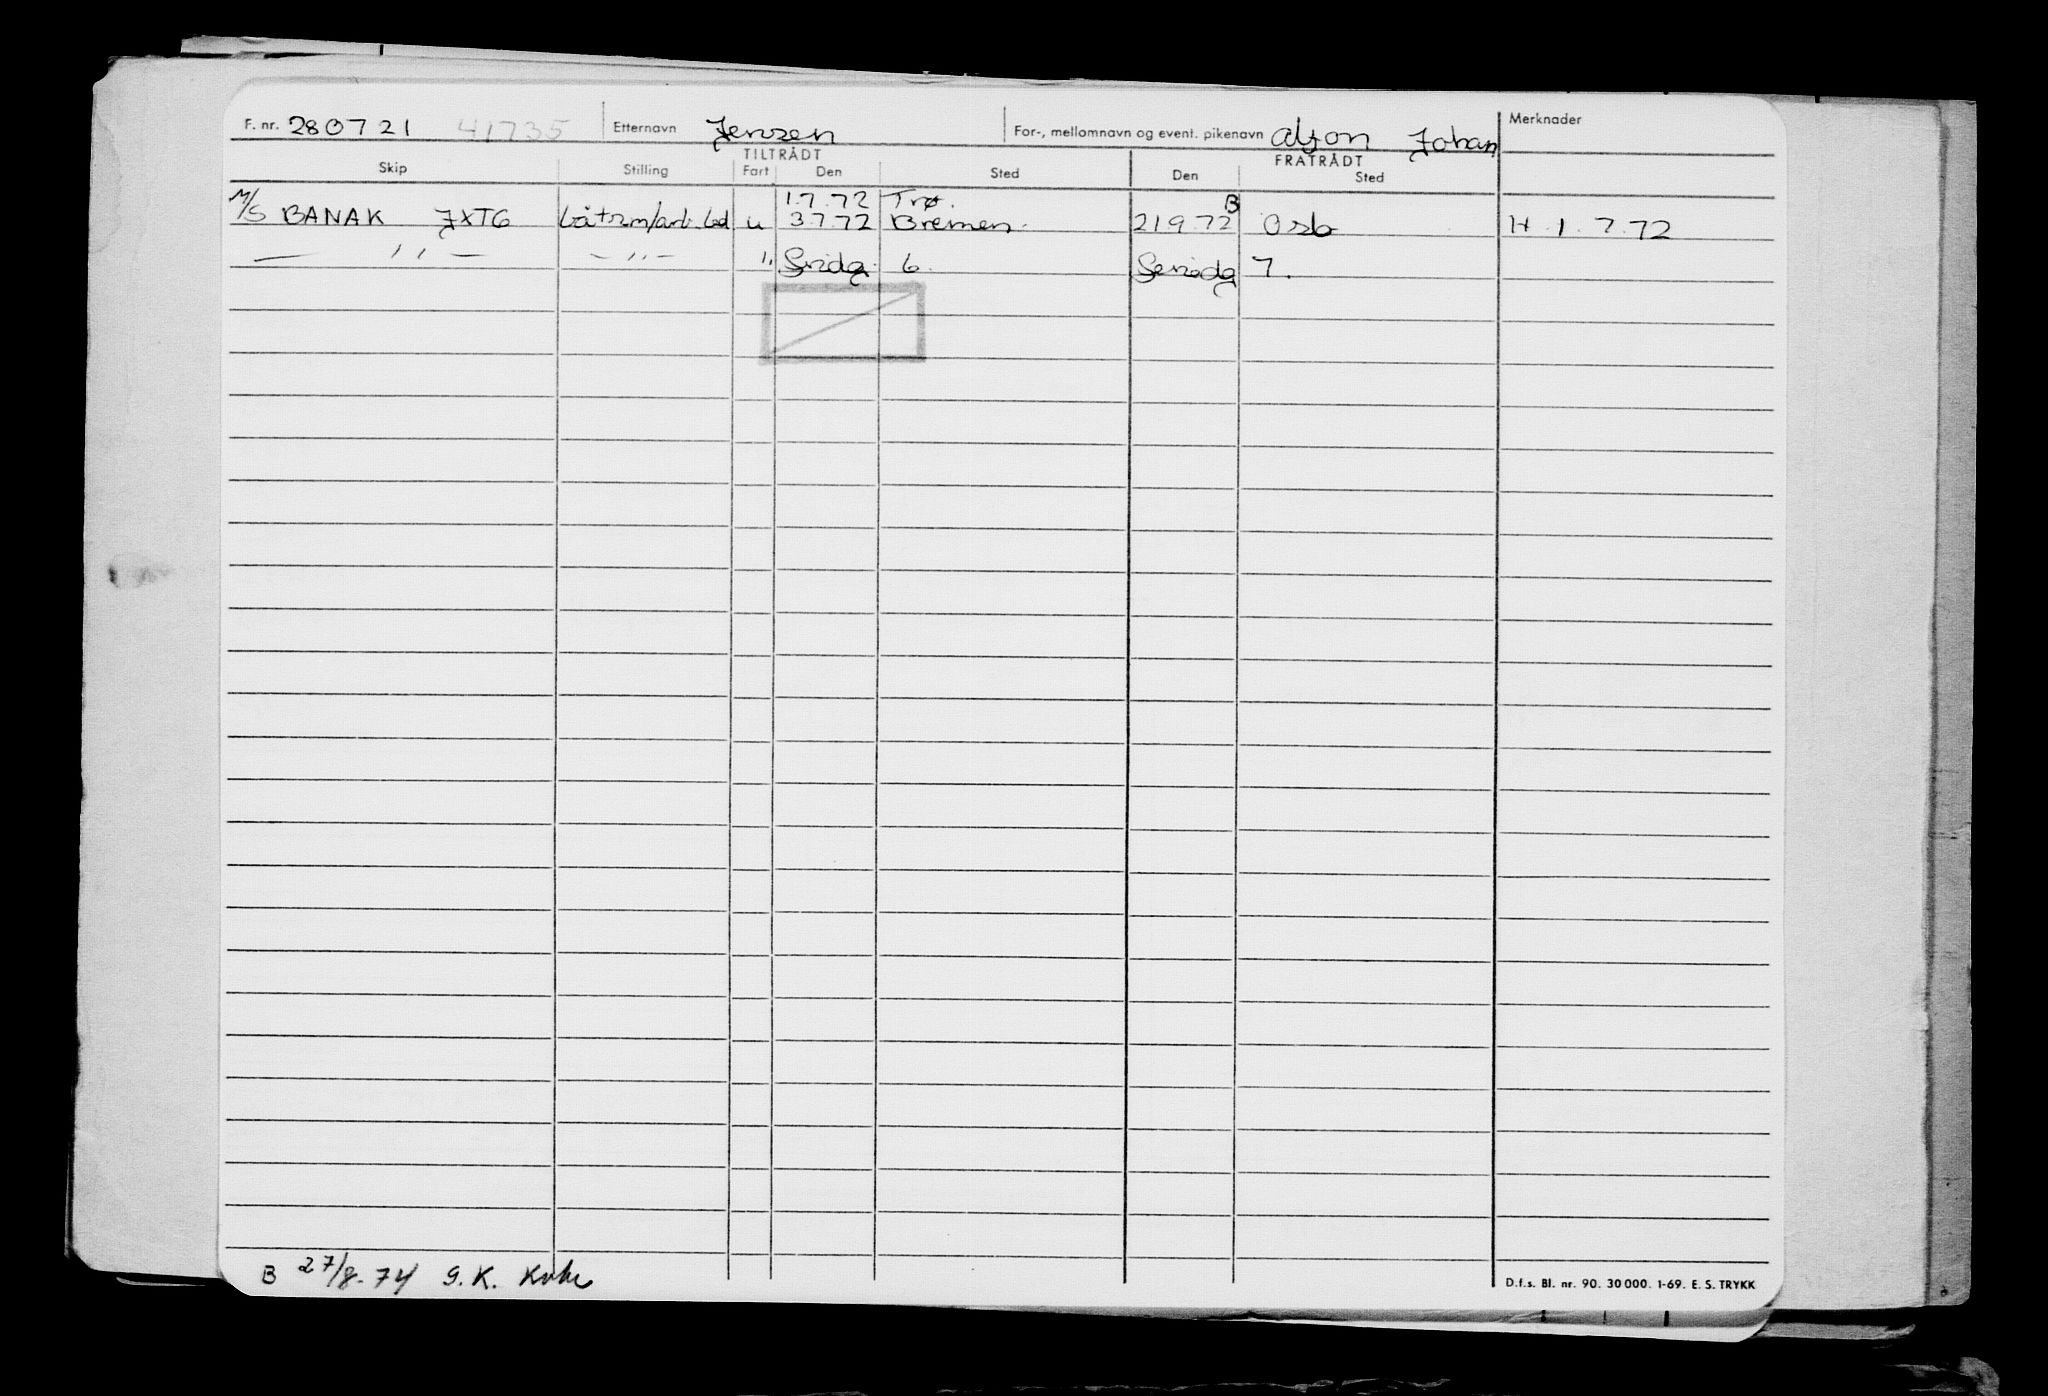 F. nr. 280721 41735 Etternavn Jensen For-, mellomnavn og event. pikenavn Alfon Johan Merknader
TILTRÅDT FRATRÅDT
Skip Stilling Fart Den Sted Den Sted
1.7.72 Trø. B
M/S BANAK JXTG båtsm/arb. led u 3.7.72 Bremen. 21 9.72 Osb H. 1. 7. 72
— ,, — — ,, — ,, 6. 7.
B 27/8-74 G.K.
D.f.s. Bl. nr. 90. 30 000. 1-69. E. S. TRYKK